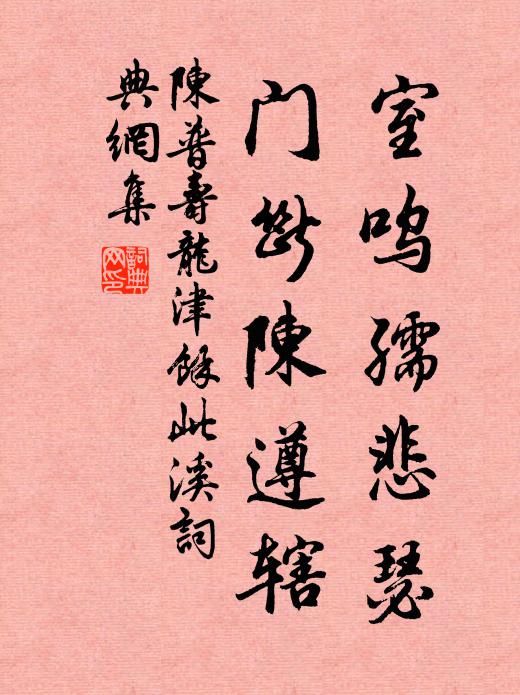 室鸣孺悲瑟
门断陳遵辖
陳普壽龍津餘此溪詞
典網集
詞典
网印